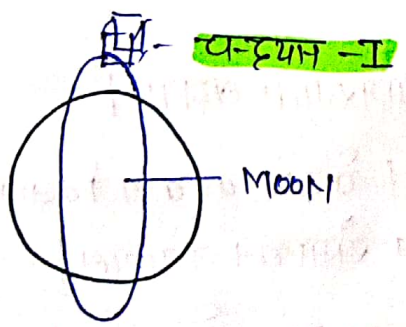 चन्द्रयान -I
MOON